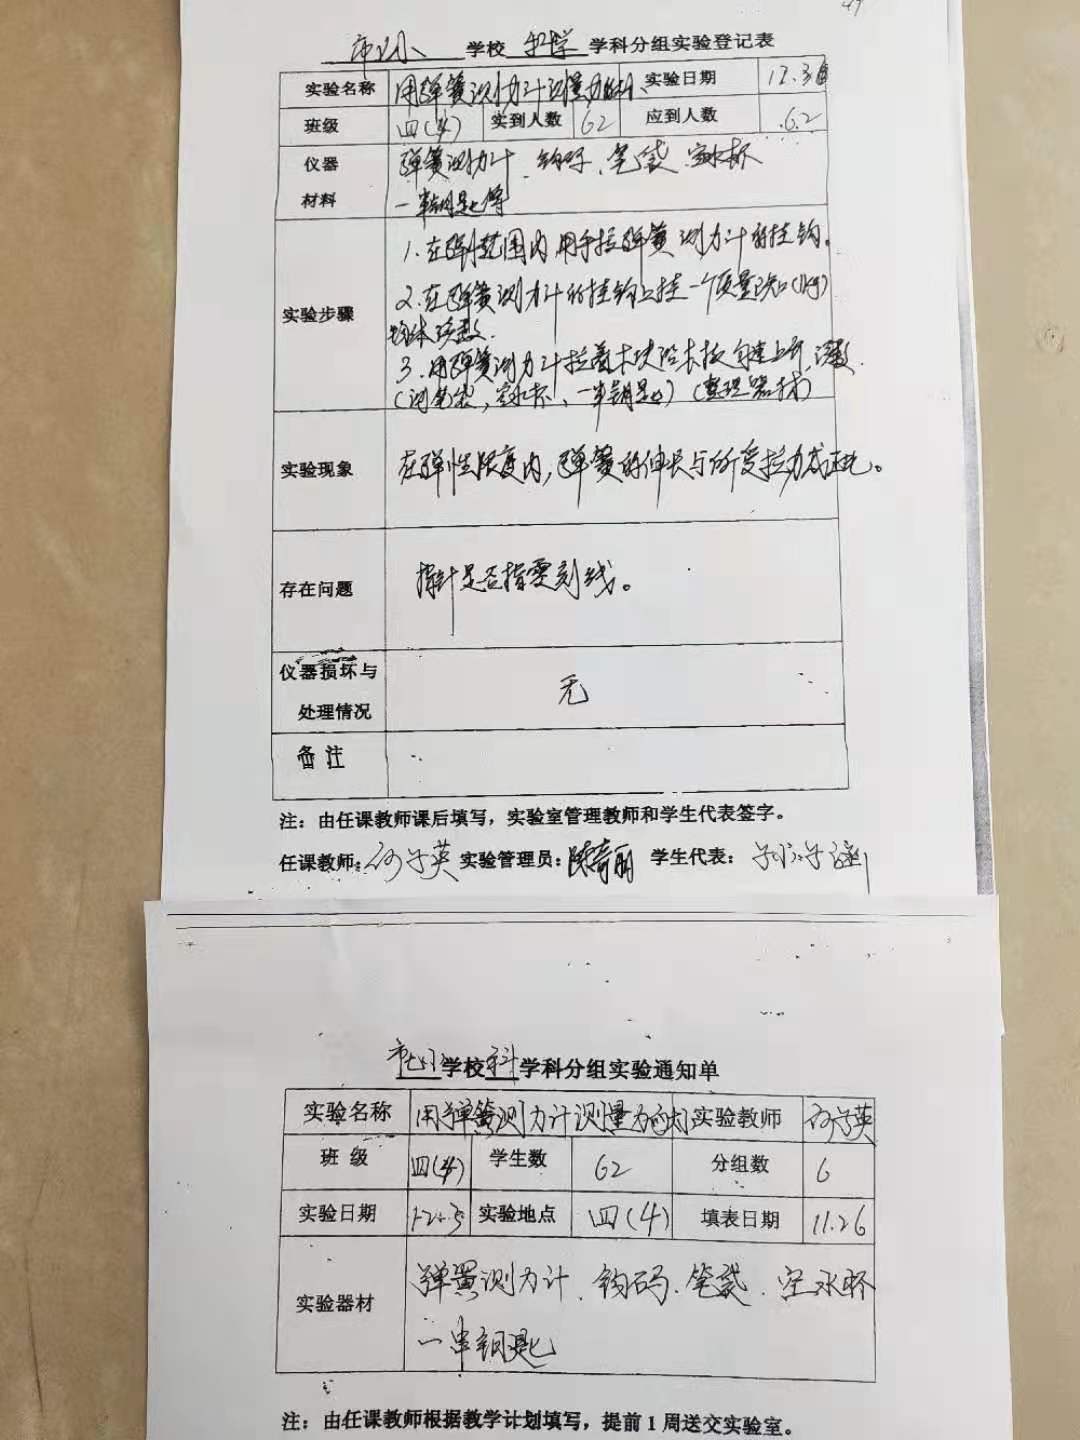 学校 科学 学科分组实验登记表
实验名称 用弹簧测力计测量力的大小 实验日期 12.3
班级 四(4) 实到人数 62 应到人数 62
仪器 弹簧测力计、钩码、笔袋、空水杯
材料 一串钥匙等
1.在弹性范围内用手拉弹簧测力计的挂钩。
2.在弹簧测力计的挂钩上挂一个质量
实验步骤
物体读数.
3.用弹簧测力计拉着木块沿长板匀速上升,读数.
(测笔袋,空水杯、一串钥匙)(整理器材)
实验现象 在弹性限度内,弹簧的伸长与所受拉力成正比。
存在问题 指针是否指零刻线。
仪器损坏与
处理情况 无
备注
注:由任课教师课后填写,实验室管理教师和学生代表签字。
任课教师: 何子英 实验管理员: 陈奇丽 学生代表:
学校 科 学科分组实验通知单
实验名称 用弹簧测力计测量力的大小 实验教师 何子英
班 级 四(4) 学生数 62 分组数 6
实验日期 12.3 实验地点 四(4) 填表日期 11.26
弹簧测力计、钩码、笔袋、空水杯
实验器材
一串钥匙
注:由任课教师根据教学计划填写,提前1周送交实验室。